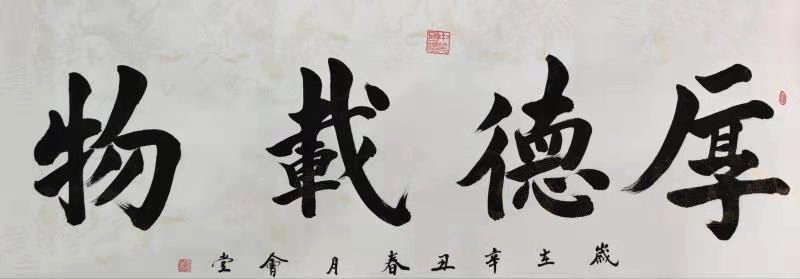 厚德載物
歲在辛丑春月會堂